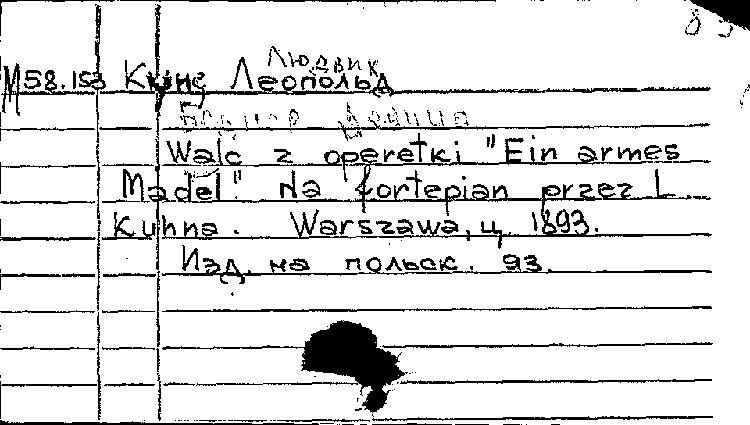 Людвик
М58.153 Кюнє Леопольд
Бедная девица
Walc z operetki "Ein armes
Mädel" na fortepian przez L.
Kuhna. Warszawa, ц. 1893.
Изд. на польск. яз.